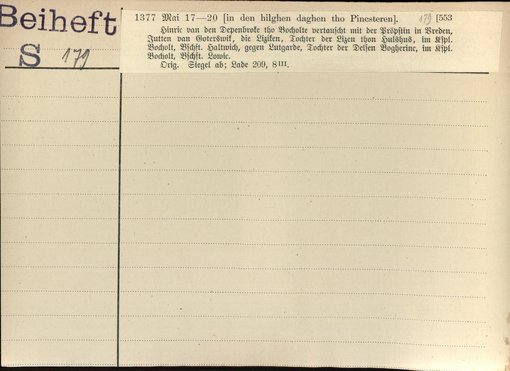 Beiheft
S 179
1377 Mai 17—20 [in den hilghen daghen tho Pinesteren]. 179 [553
Hinric van den Depenbroke tho Bocholte vertauscht mit der Pröpstin in Vreden,
Jutten van Goterswik, die Liziken, Tochter der Lizen thon Hulshus, im Kspl.
Bocholt, Bschft. Haltwich, gegen Lutgarde, Tochter der Delsen Bogherinc, im Kspl.
Bocholt, Bschft. Lowic.
Orig. Siegel ab; Lade 209, 8 III.